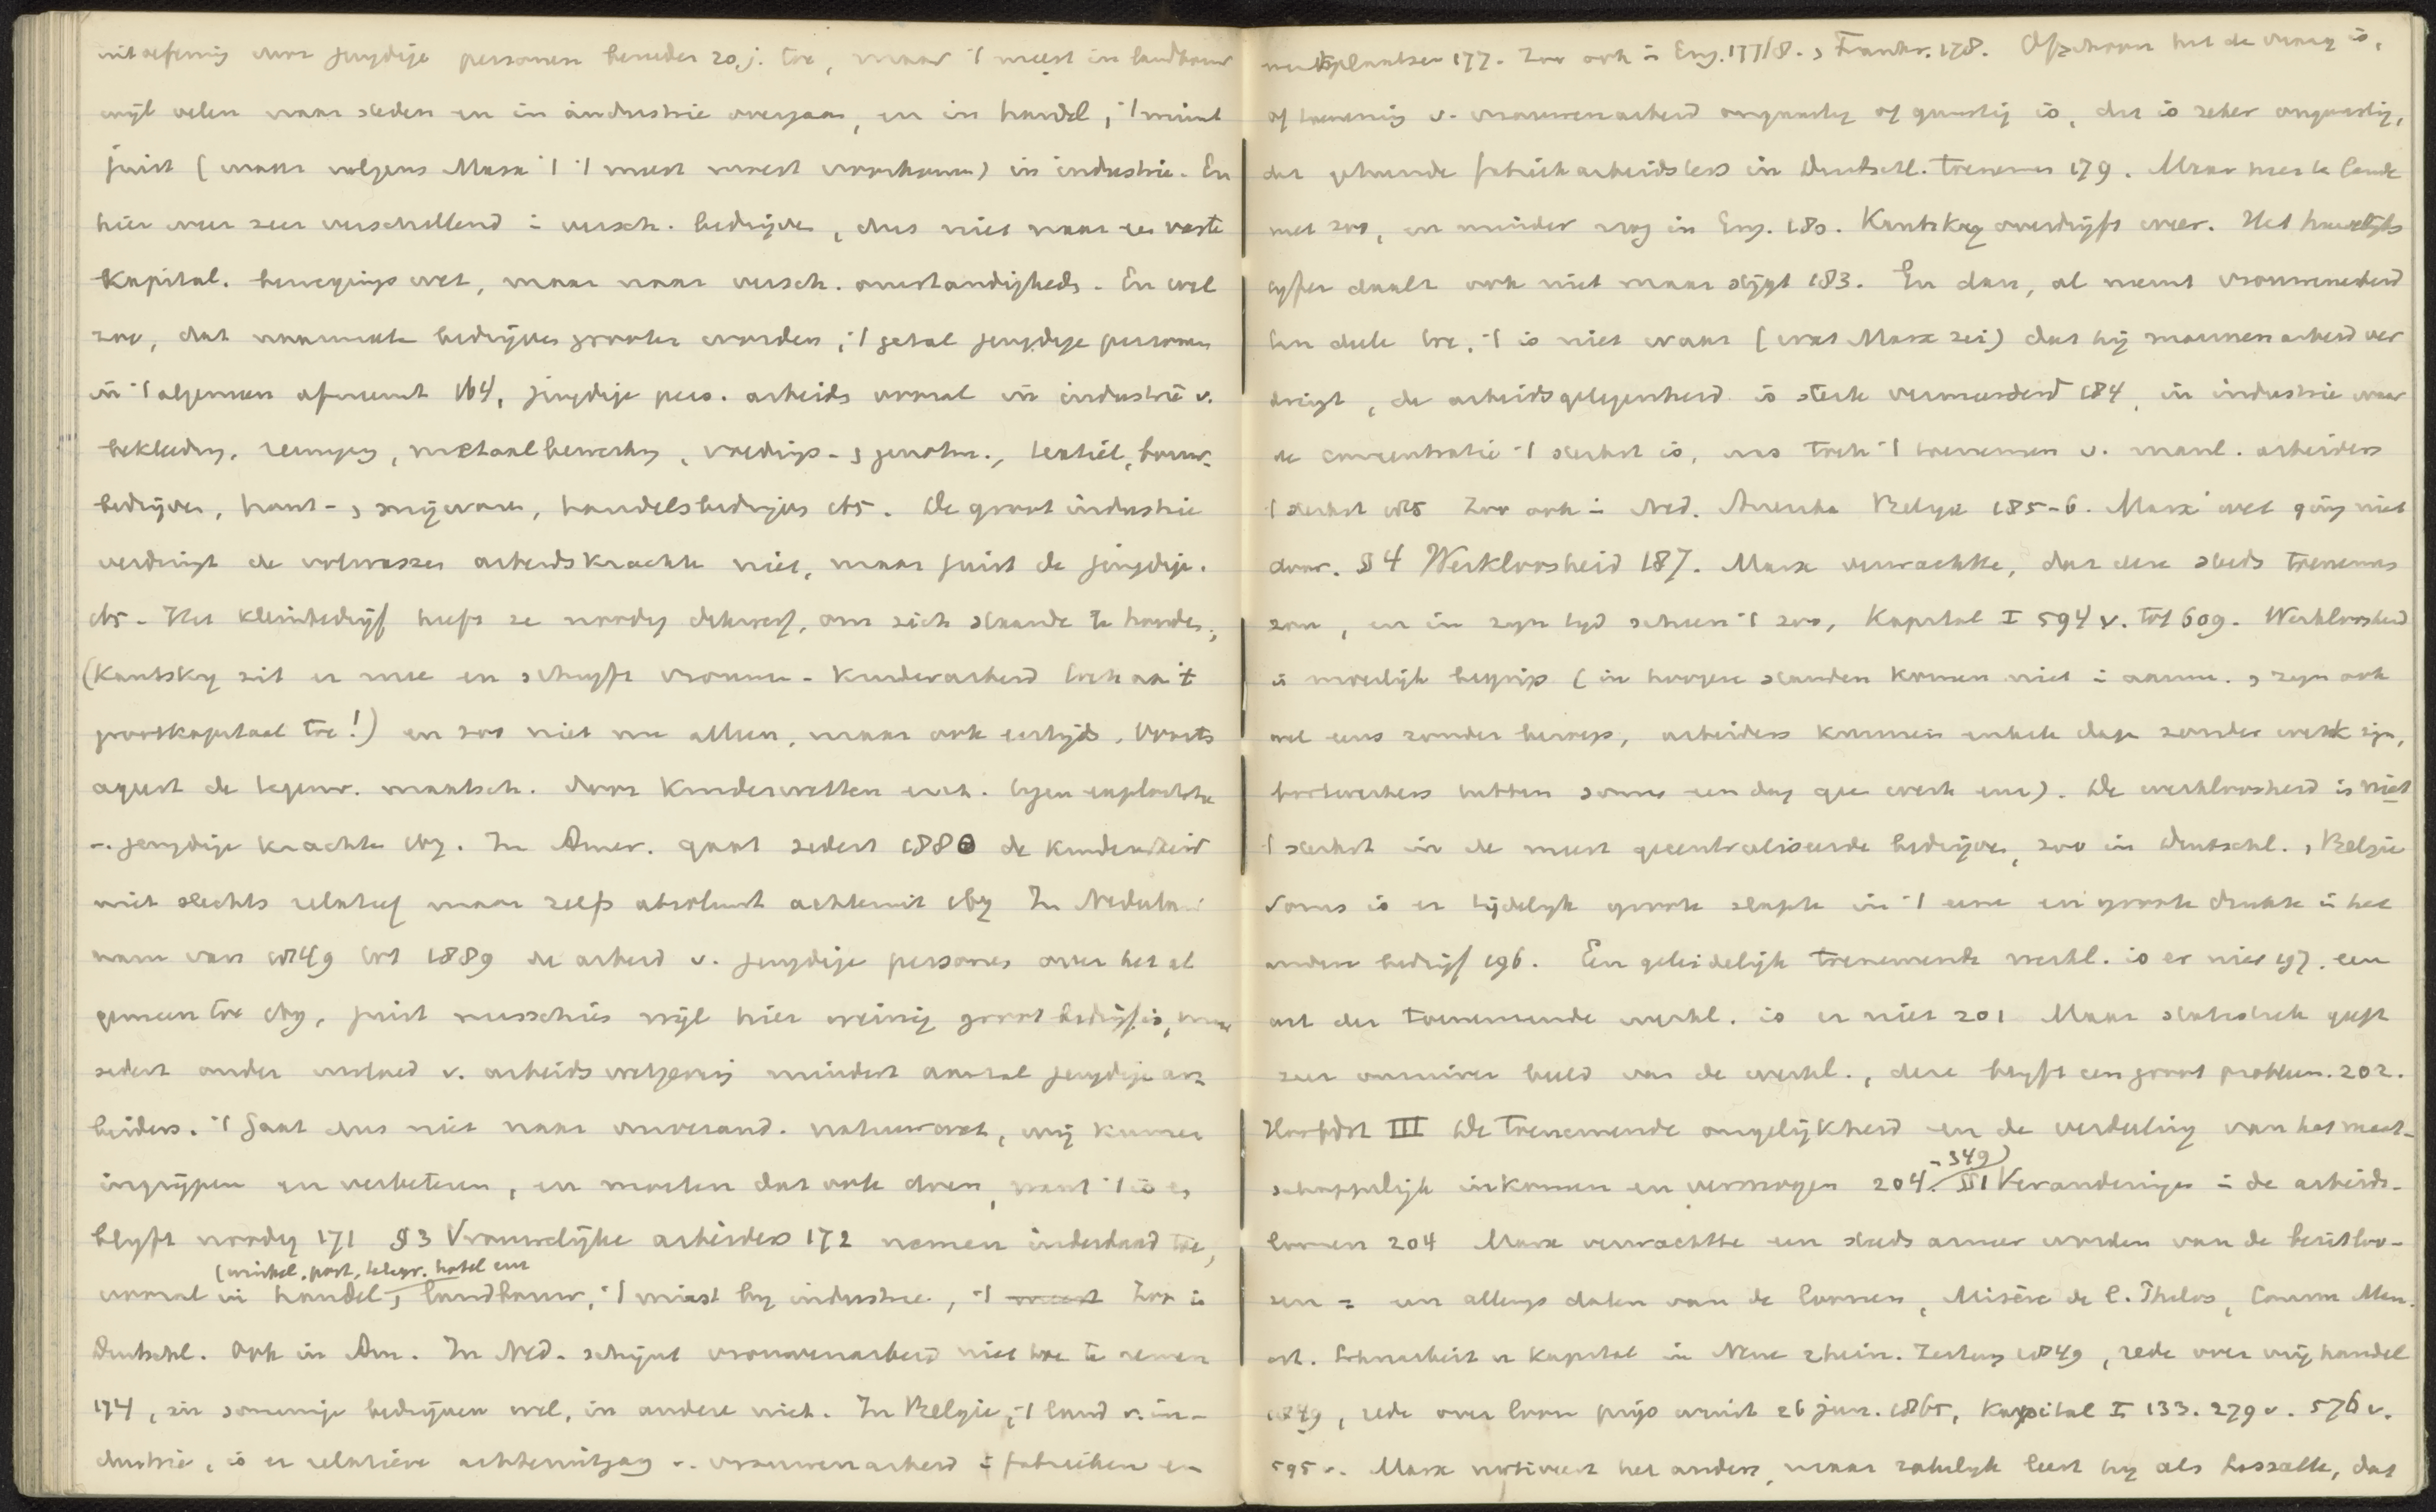 uitoefening door jeugdige personen beneden 20 j. toe, maar 't meest in landbouw
wijl velen naar steden en in industrie overgaan, en in handel, 't minst
juist (waar volgens Marx 't 't meest moest voorkomen) in industrie. En
hier weer zeer verschillend i versch. bedrijven, dus niet naar een vaste
kapital. bewegingswet, maar naar versch. omstandigheden. En wel
zoo, dat naarmate bedrijven grooter worden, 't getal jeugdige personen
in 't algemeen afneemt 164, jeugdige pers. arbeiden vooral in industrie v.
bekleeding, reiniging, metaalbewerking, voedings- , genotm., textiel, bouw-
bedrijven, hout- , snijwaren, handelsbedrijven 165. De groot industrie
verdringt de volwassen arbeidskrachten niet, maar juist de jeugdige.
165 - Het kleinbedrijf heeft ze noodig dikwerf, om zich staande te houden,
(Kautsky zit er mee en schrijft vrouwen- kinderarbeid toch aan 't
grootkapitaal toe!) en zoo niet nu alleen, maar ook eertijds. Voorts
ageert de tegenw. maatsch. door kinderwetten enz. tegen exploitatie
v. jeugdige krachten 169. In Amer. gaat sedert 1880 de kinderarbeid
niet slechts relatief maar zelfs absoluut achteruit 169 In Nederland
nam van 1849 tot 1889 de arbeid v. jeugdige personen over het al
gemeen toe 169, juist misschien wijl hier weinig groot bedrijf is, maar
sedert onder invloed v. arbeidswetgeving mindert aantal jeugdige ar-
beiders. 't Gaat dus niet naar onverand. natuurwet, wij kunnen
ingrijpen en verbeteren, en moeten dat ook doen, want 't is en
blijft noodig 171 § 3 Vrouwelijke arbeiders 172 nemen inderdaad toe,
(winkel, post, telegr. hotel enz
vooral in handel, landbouw, 't minst bij industrie, 't meest Zoo in
Duitschl. Ook in Am. In Ned. schijnt vrouwenarbeid niet toe te nemen
174, in sommige bedrijven wel, in andere niet. In Belgie, 't land v. in-
dustrie, is er relatieve achteruitgang v. vrouwenarbeid i fabrieken en
werkplaatsen 177. Zoo ook i Eng. 177/8. , Frankr. 178. Ofschoon het de vraag is,
of toeneming v. vrouwenarbeid ongunstig of gunstig is, dit is zeker ongunstig,
dat gehuwde fabriekarbeidsters in Duitschl. toenemen 179. Maar hier te lande
niet zoo, en minder nog in Eng. 180. Kautsky overdrijft weer. Het huwelijks
cijfer daalt ook niet maar stijgt 183. En dan, al neemt vrouwenarbeid
ten deele toe, 't is niet waar (wat Marx zei) dat hij mannenarbeid ver
dringt, de arbeidsgelegenheid is sterk vermeerderd 184, in industrie waar
de concentratie 't sterkst is, was ook 't toenemen v. manl. arbeiders
't sterkst 185 Zoo ook i Ned. Amerika Belgie 185-6. Marx' wet ging niet
door. § 4 Werkloosheid 187. Marx verwachtte, dat deze steeds toenemen
zou, en in zijn tijd scheen 't zoo, Kapital I 594 v. tot 609. Werkloosheid
is moeilijk begrip (in hoogere standen komen niet i aanm. , zijn ook
wel eens zonder beroep, arbeiders kunnen enkele dagen zonder werk zijn,
bootwerkers hebben soms een dag geen werk enz). De werkloosheid is niet
't sterkst in de meest gecentraliseerde bedrijven, zoo in Duitschl. , Belgie
Soms is er tijdelijk groote slapte in 't eene en groote drukte in het
andere bedrijf 196. Een geleidelijk toenemende werkl. is er niet 197. een
wet der toenemende werkl. is er niet 201 Maar statistiek geeft
zeer onzuiver beeld van de werkl., deze blijft een groot probleem. 202.
Hoofdst III De toenemende ongelijkheid en de verdeeling van het maat-
schappelijk inkomen en vermogen 204.-349) § 1 Veranderingen i de arbeids-
loonen 204 Marx verwachtte een steeds armer worden van de bezitloo-
zen = een allengs dalen van de loonen, Misère de l. Philos, Comm Man.
art. Lohnarbeit u Kapital in Neue rhein. Zeitung 1849, rede over vrijhandel
1849, rede over loon prijs winst 26 jun. 1865, Kapital I 133. 279 v. 576 v.
595 v. Marx motiveert het anders, maar zakelijk leert hij als Lassalle, dat